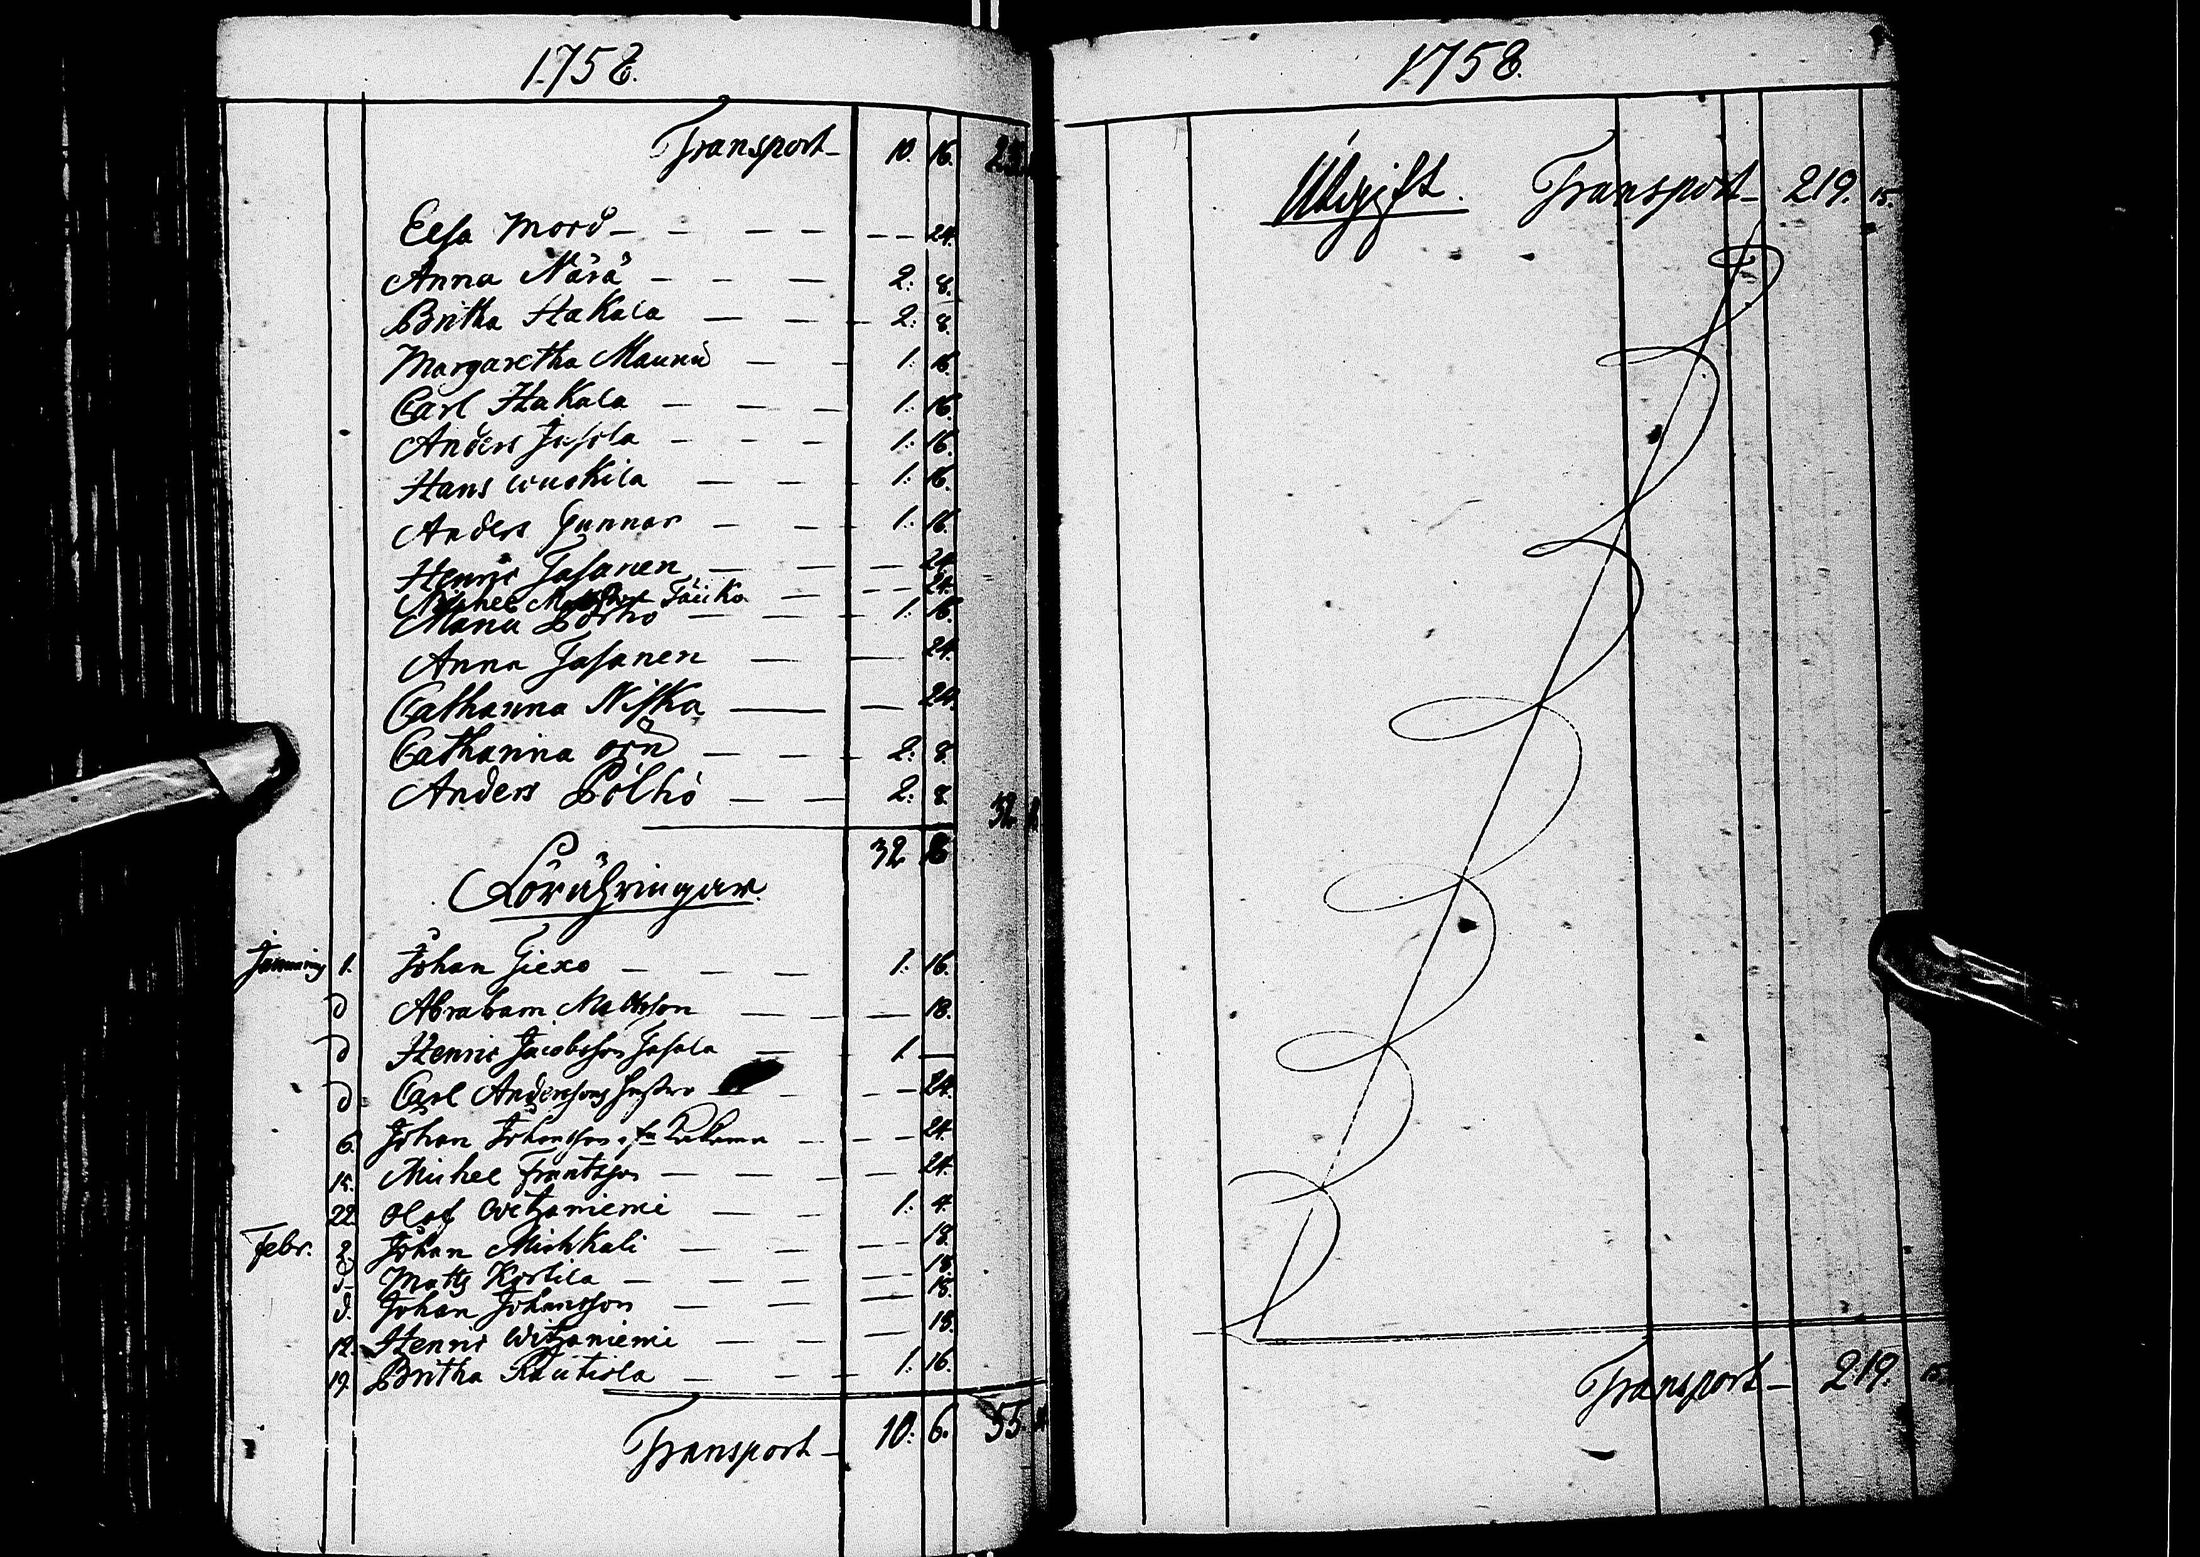 1758.
Transport — 10. 16.
Elsa Mård — — — — — 24.
Anna Närä — — — 2: 8.
Britha Hakala — — — 2: 8.
Margaretha Maunu — — 1: 16.
Carl Hakala — — — 1: 16.
Anders — — — 1: 16.
Hans wuokila — — — 1: 16.
Anders Gunnar — — — 1: 16.
Henric Jasanen — — — 24.
Michel — — — 24.
— — — 1: 16.
Anna Jasanen — — 24.
Catharina Niska — — 24.
Catharina — — — 2: 8.
Anders Pölhö — — 2: 8.
32. 8
Januarij 1. Johan Giexo — — — 1: 16.
d Abraham Mattsson — — — 18.
d Henric Jacobsson Jasala — 1. —
d Carl Anderssons — — — 24.
6. Johan Johansson — — — 24.
15. Michel Frantsson — — — 24.
22. Olof Witzaniemi — — 1: 4.
Febr. 2. Johan Mickkali — — — 18.
d. Matts Kortila — — — 18.
d. Johan Johansson — — — 18.
12. Henric Witzaniemi — — — 18.
19. Britha Rautiola — — — 1: 16.
Transport — 10: 6. 55.
1758.
Utgift. Transport — 219. 15.
Transport — 219. 15.